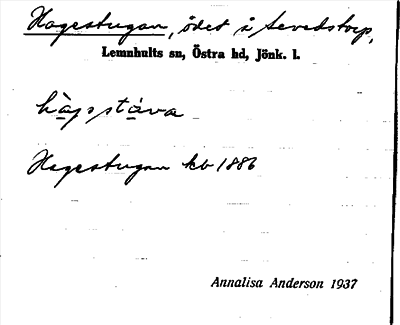 Hagestugan, ödet å Sevedstorp,
Lemnhults sn, Östra hd, Jönk. l.
Hagestugan kb 1886
Annalisa Anderson 1937